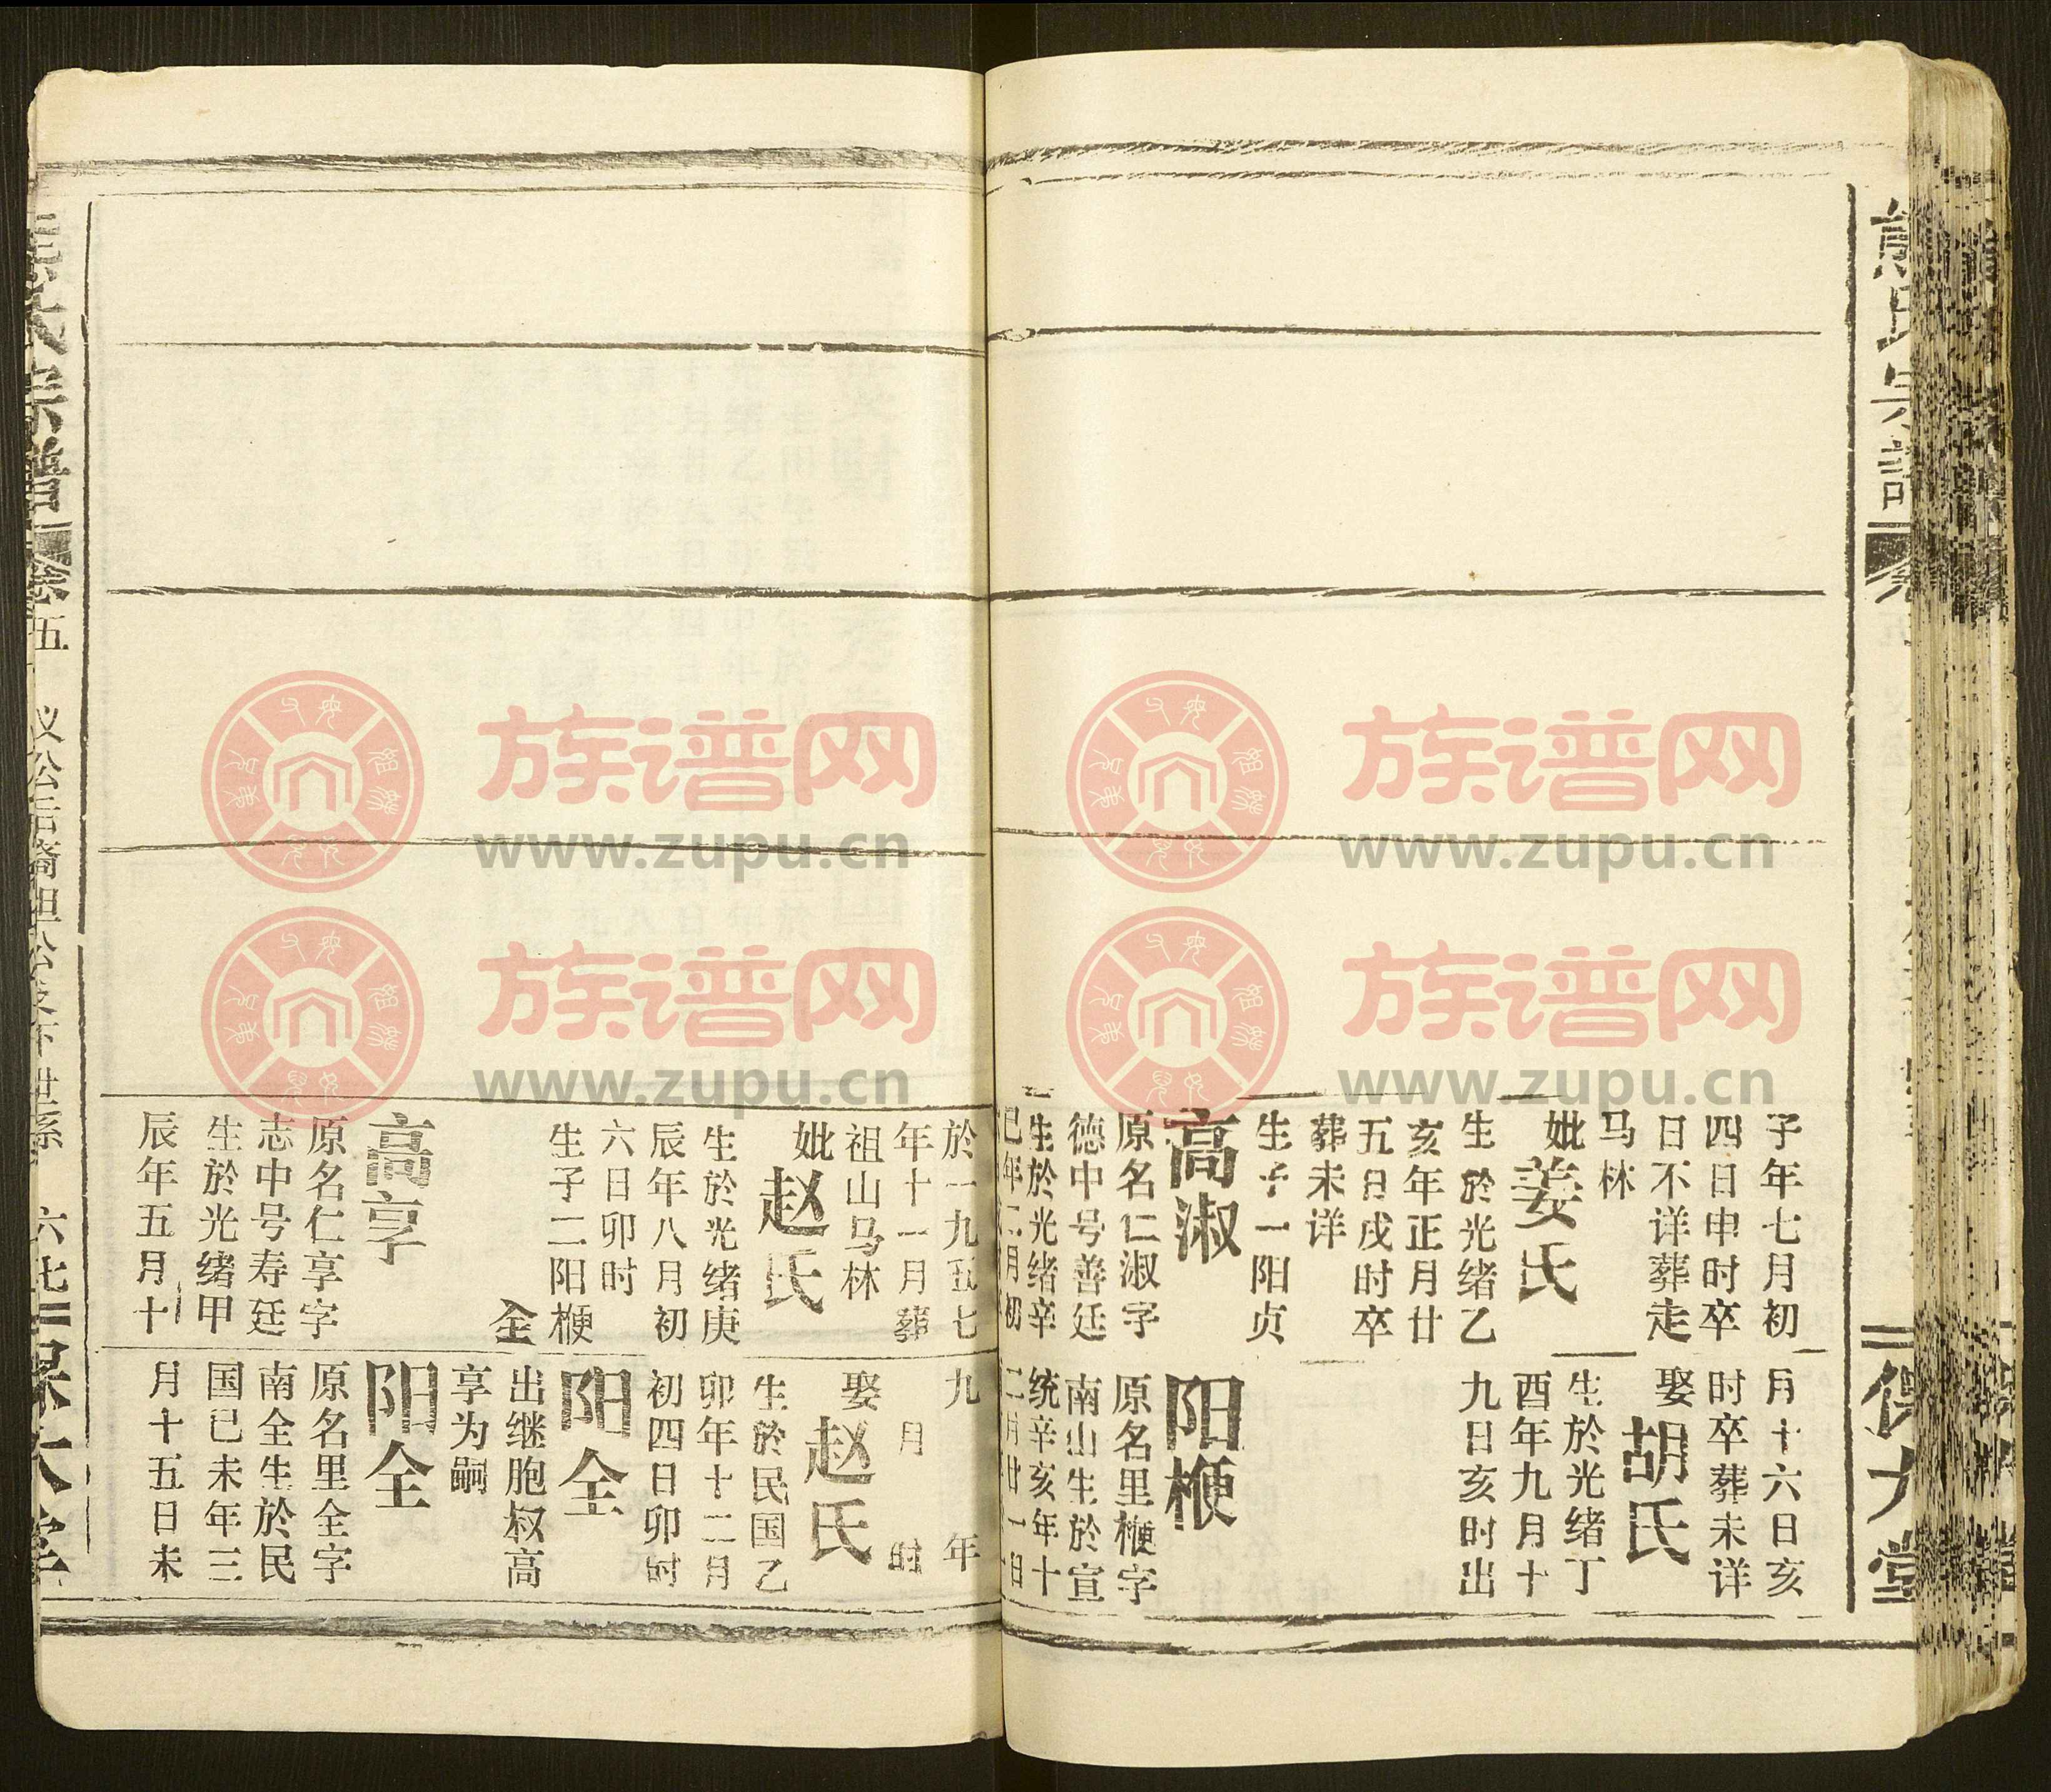 子年七月初
四日申时卒
日不详葬走
马林
妣姜氏
生於光绪乙
亥年正月廿
五日戌时卒
葬未详
生子一阳贞
高淑
原名仁淑字
德中号善廷
生於光绪辛
巳年二月初
月十六日亥
时卒葬未详
娶胡氏
生於光绪丁
酉年九月十
九日亥时出
阳楩
原名里楩字
南山生於宣
统辛亥年十
二月廿一日
於一九五七
年十一月葬
祖山马林
妣赵氏
生於光绪庚
辰年八月初
六日卯时
生子二阳楩
全
高享
原名仁享字
志中号寿廷
生於光绪甲
辰年五月十
九 年
月 时
娶赵氏
生於民国乙
卯年十二月
初四日卯时
阳全
出继胞叔高
享为嗣
阳全
原名里全字
南全生於民
国已未年三
月十五日未
宗谱 卷五
公后裔坦公支下世系
族谱网
www.zupu.cn
族谱网
www.zupu.cn
族谱网
www.zupu.cn
族谱网
www.zupu.cn